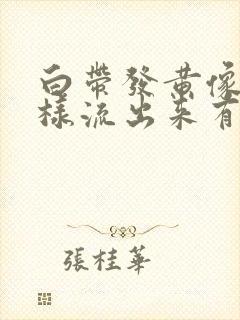 白帶發黃像
樣流出來有
張桂華